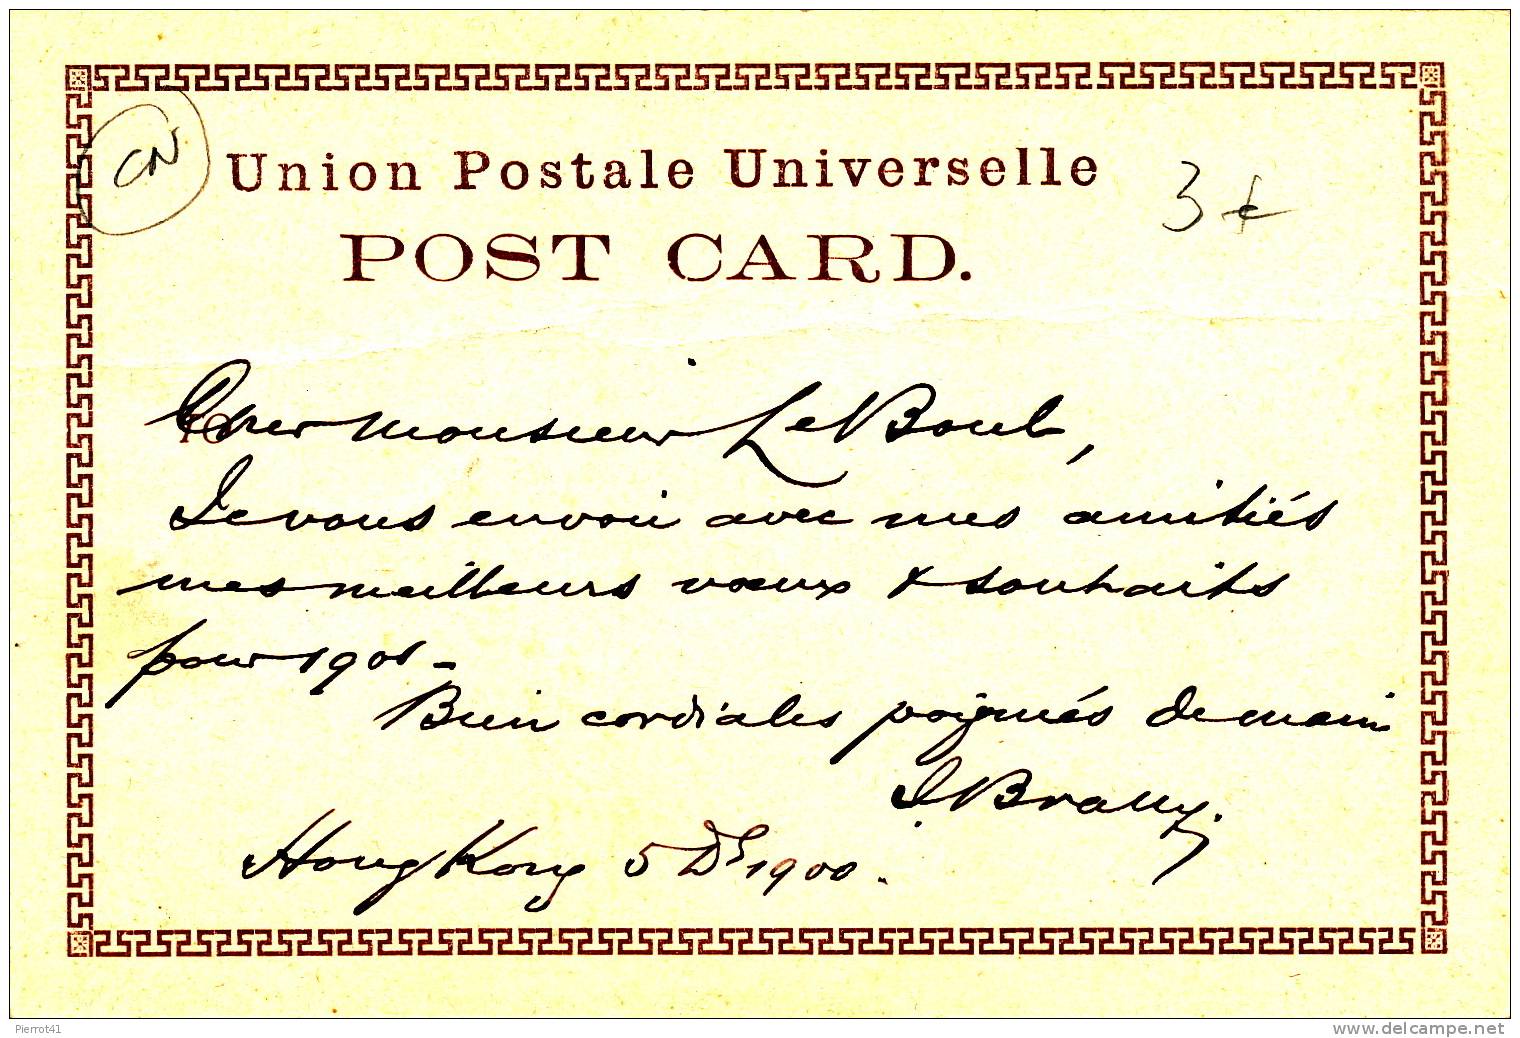 CN
Union Postale Universelle
3 €
POST CARD.
TO
Cher monsieur Le Boul,
Je vous envoi avec mes amitiés
mes meilleurs vœux & souhaits
pour 1901 -
Bien cordiales poignés de main
J Brally.
Hong Kong 5 Dbr 1900.
Pierrot41
www.delcampe.net